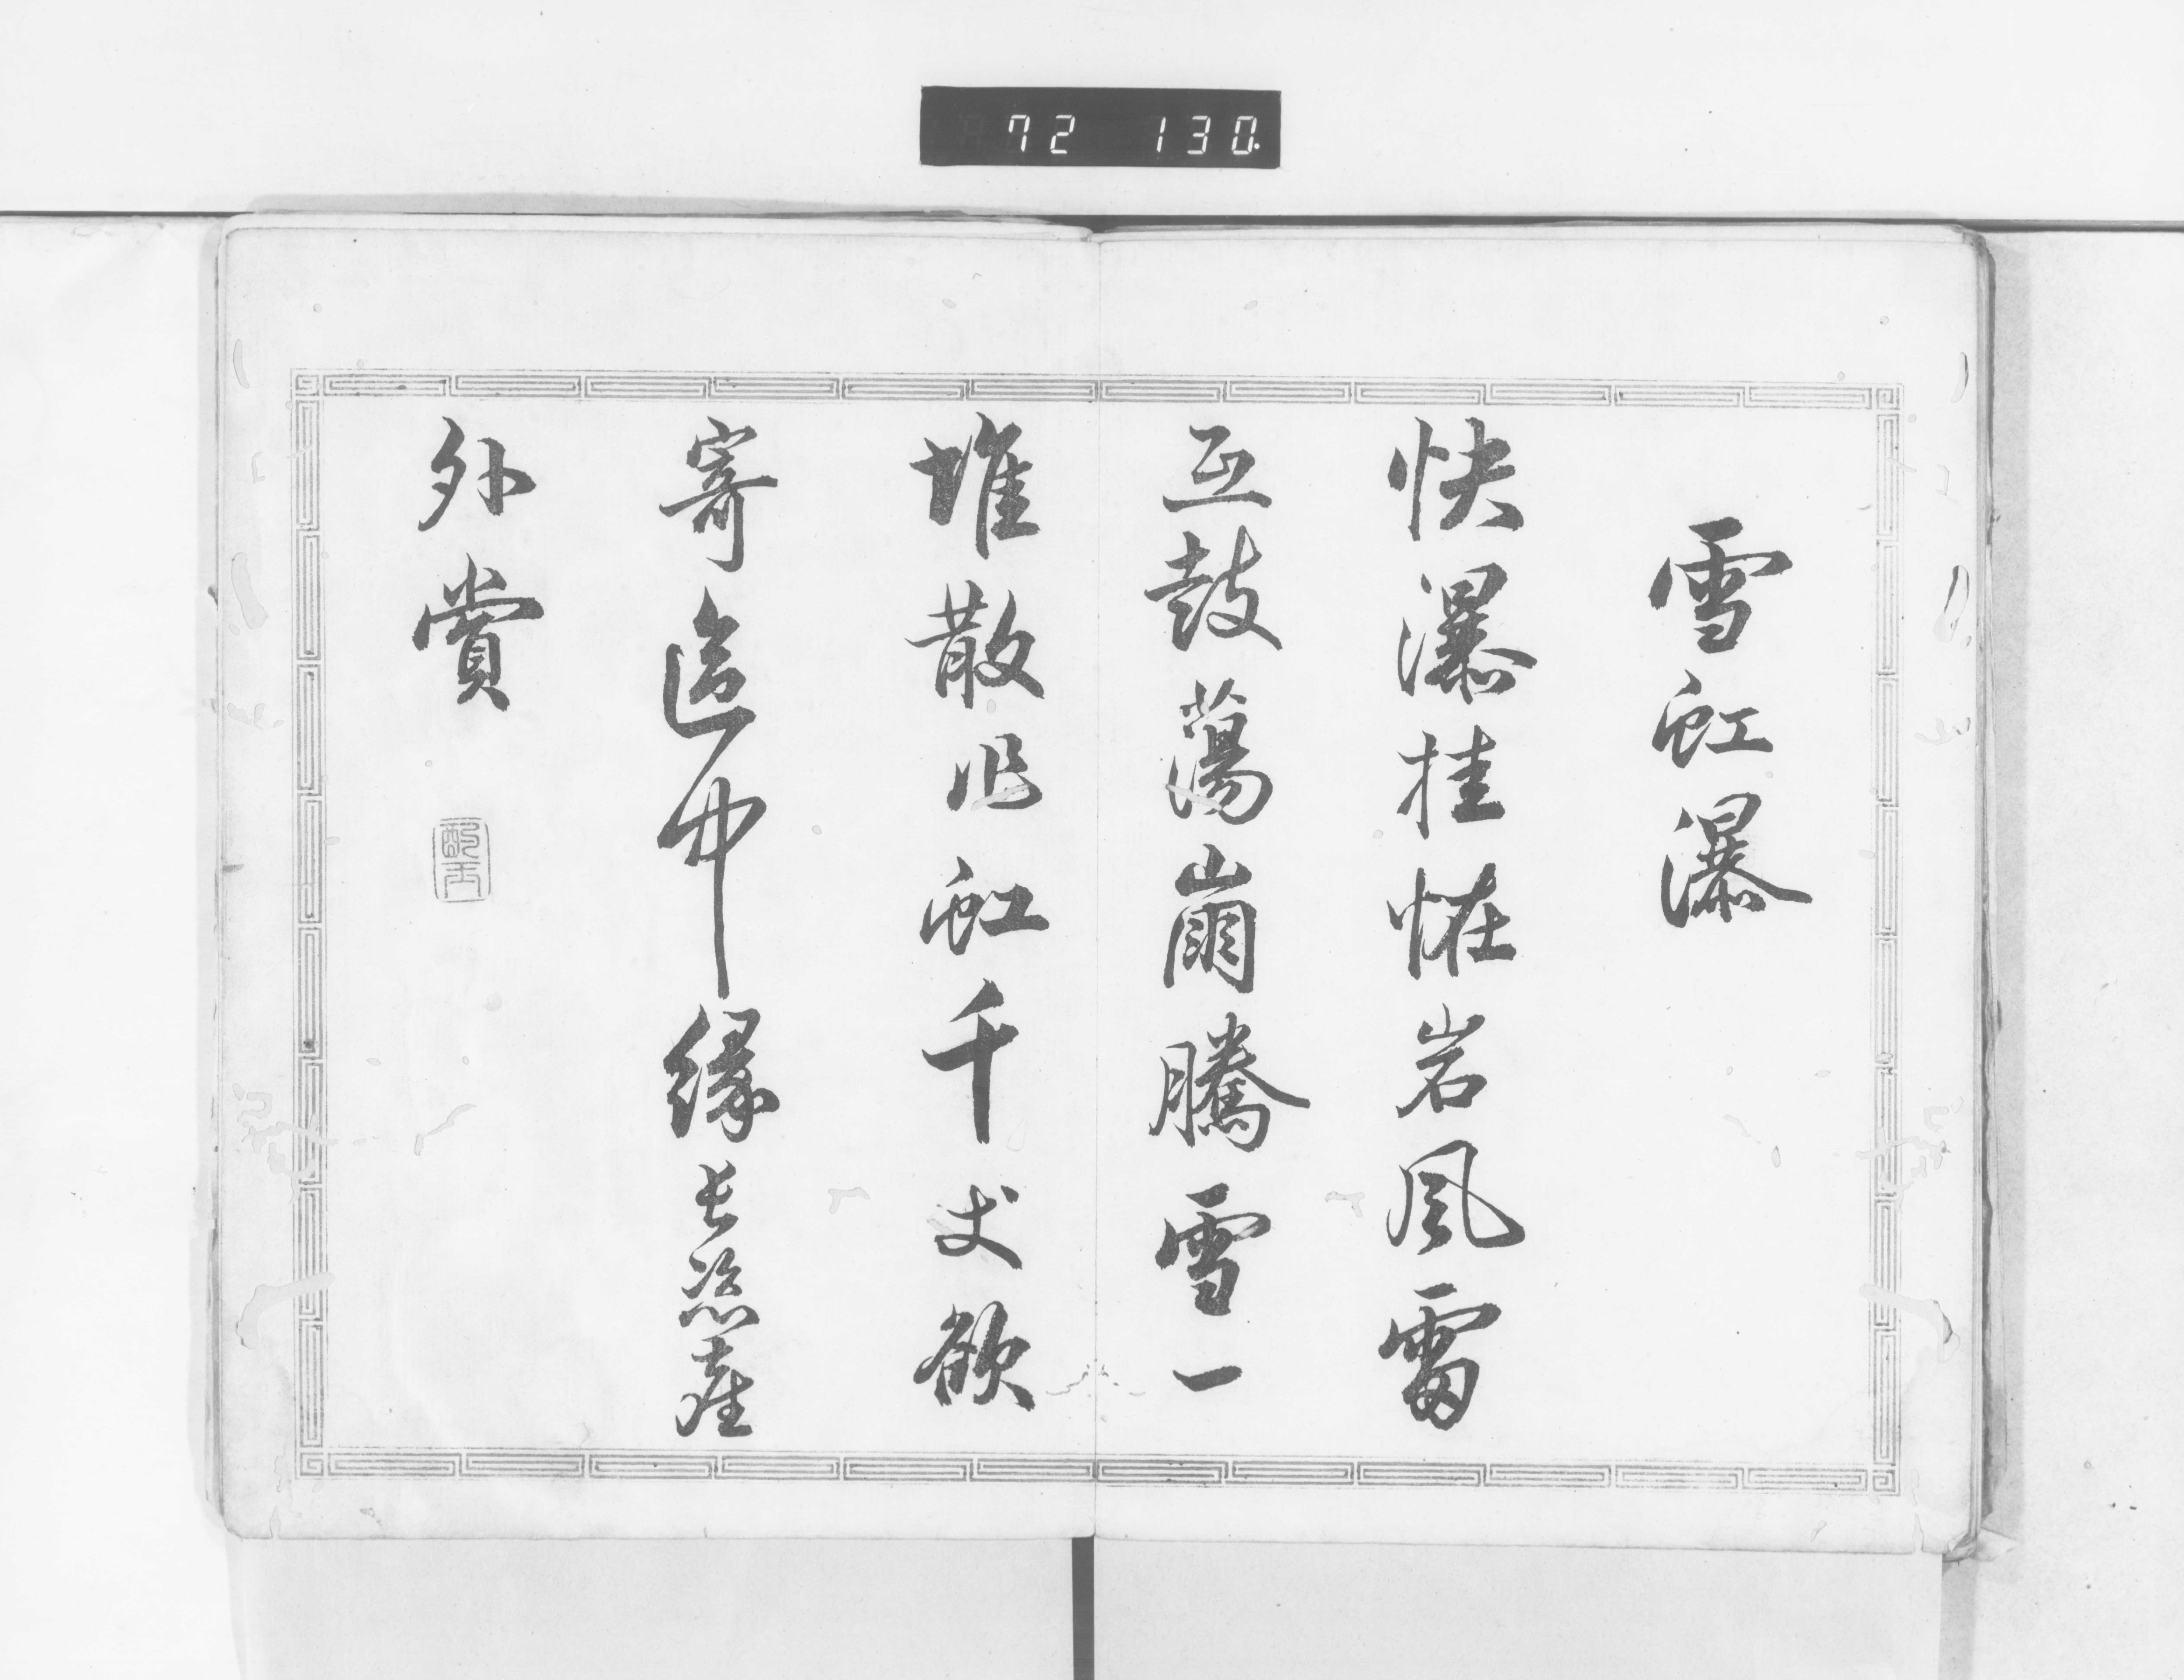 72 130.
雪虹瀑
快瀑挂恠岩風雷
互鼓蕩崩騰雪一
堆散作虹千丈欲
寄區中縁長恣塵
外賞